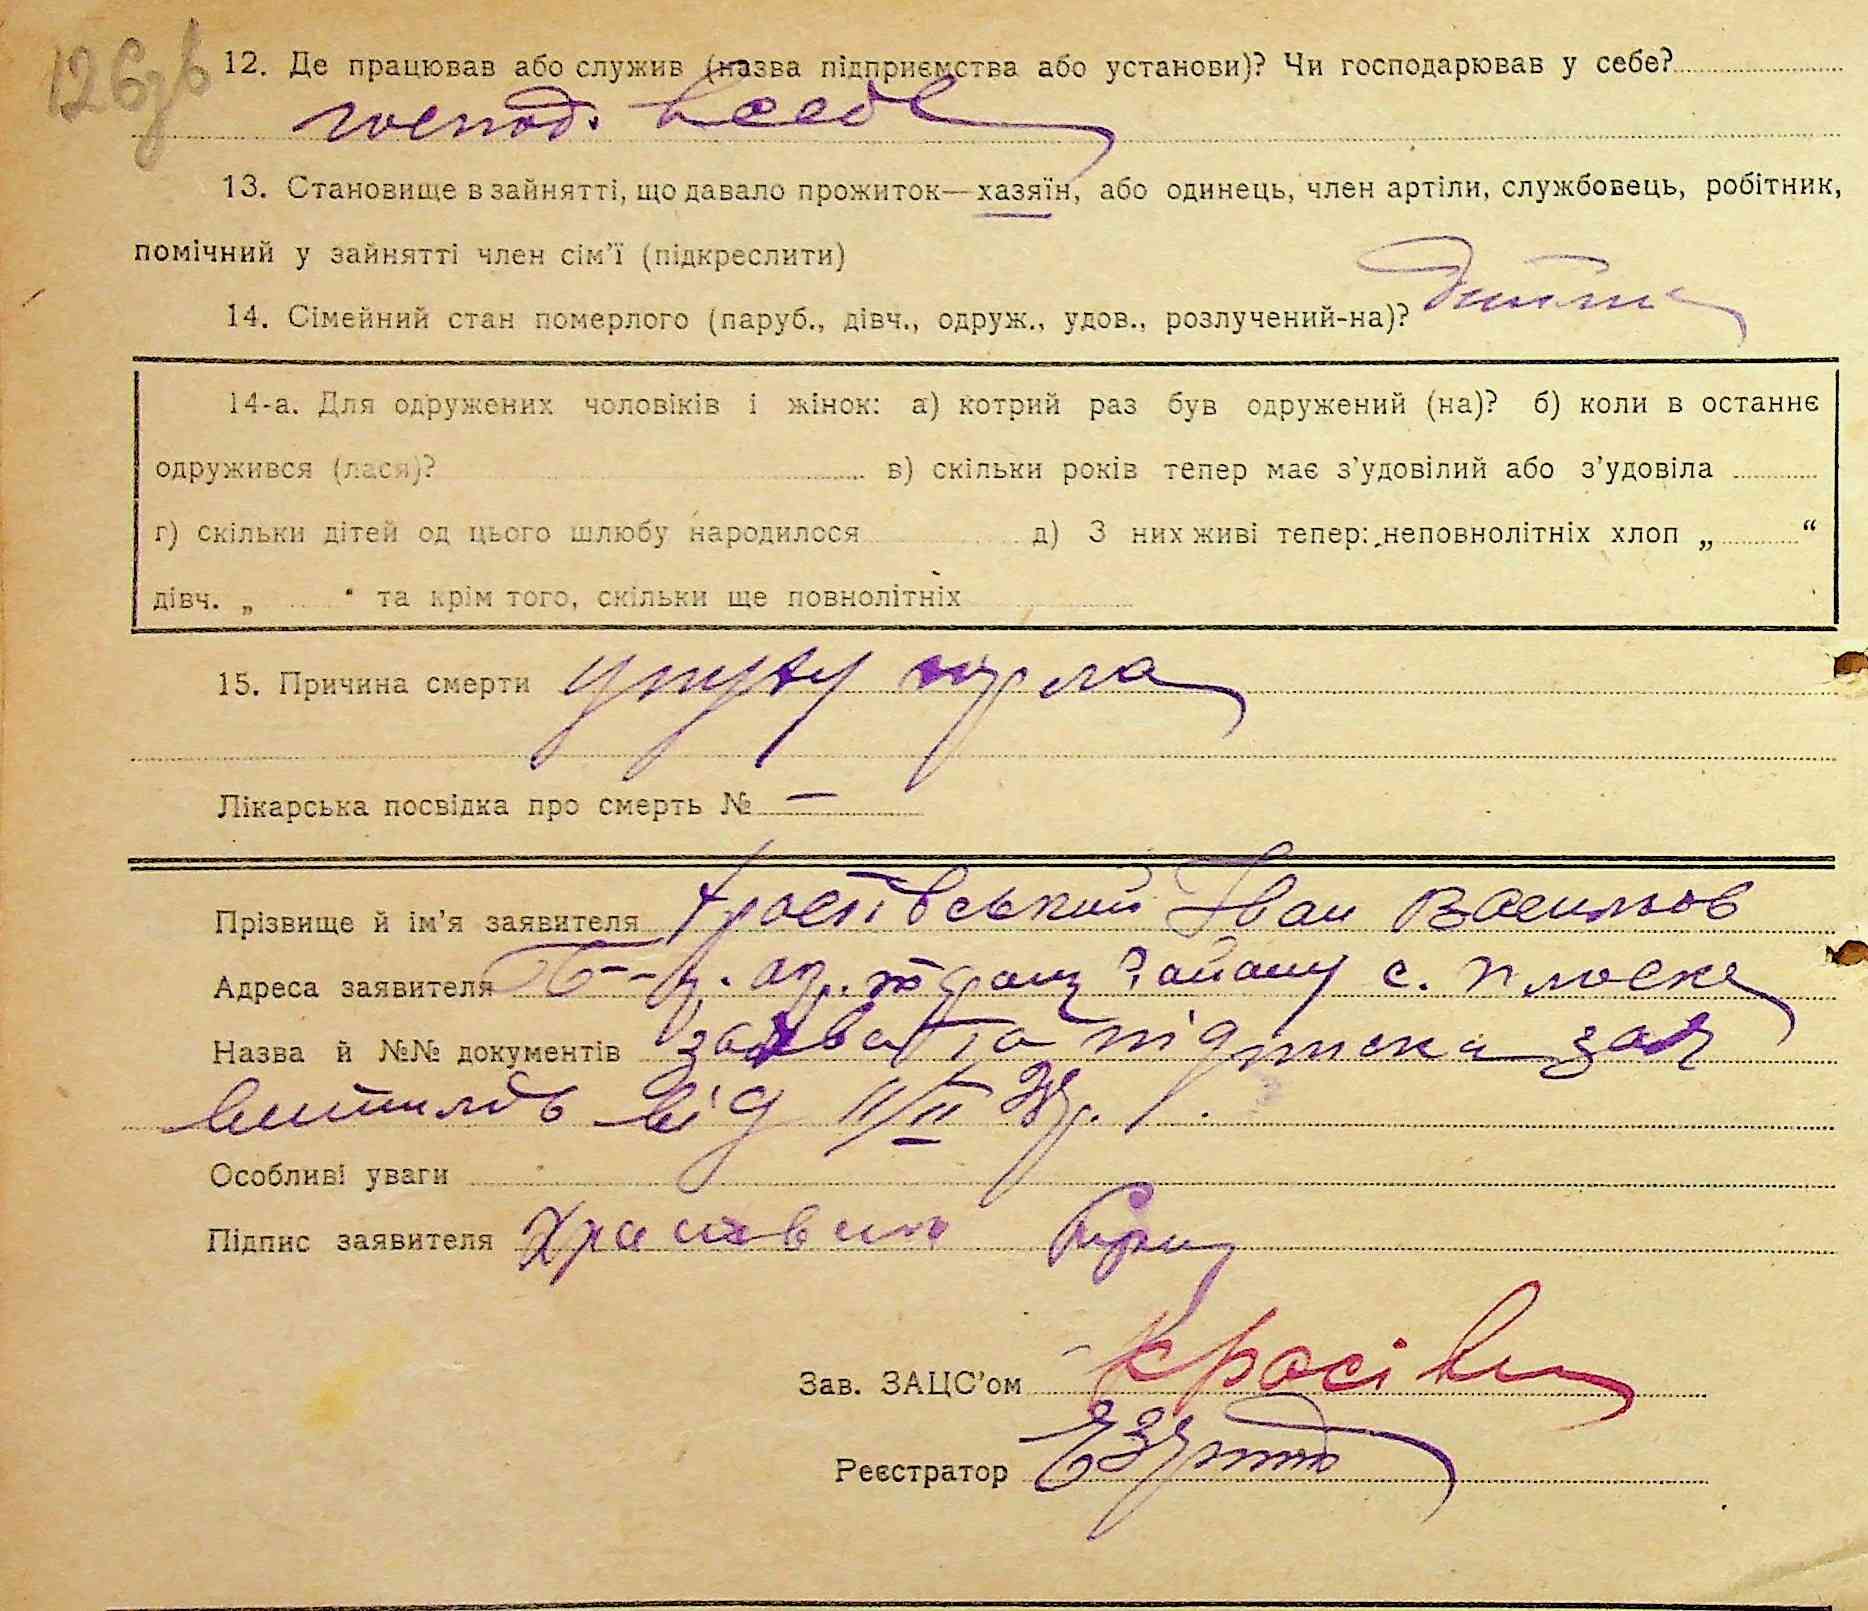 126зв
12. Де працював або служив (назва підприємства або установи)? Чи господарював у себе?
господ. в себе
13. Становище в зайнятті, що давало прожиток—хазяїн, або одинець, член артіли, службовець, робітник,
помічний у зайнятті член сім'ї (підкреслити)
14. Сімейний стан померлого (паруб., дівч., одруж., удов., розлучений-на)? дитина
14-а. Для одружених чоловіків і жінок: а) котрий раз був одружений (на)? б) коли в останнє
одружився (лася)? в) скільки років тепер має з'удовілий або з'удовіла
г) скільки дітей од цього шлюбу народилося д) З них живі тепер: неповнолітніх хлоп „ “
дівч. „ “ та крім того, скільки ще повнолітніх
15. Причина смерти
Лікарська посвідка про смерть № —
Прізвище й ім'я заявителя Іван Васильов
Адреса заявителя району с. Плоске
Назва й №№ документів заява та підписка зая
вителів від 11/II
Особливі уваги
Підпис заявителя
Зав. ЗАЦС'ом
Реєстратор